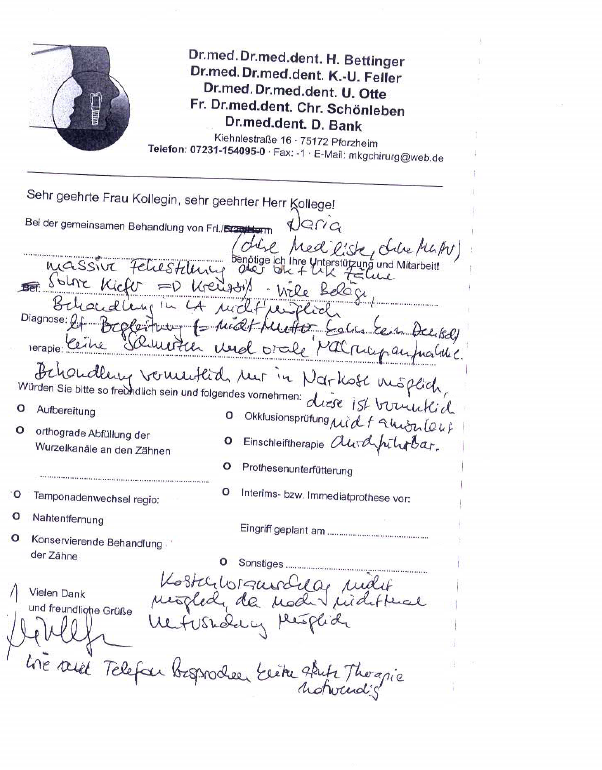 Dr.med.Dr.med.dent. H. Bettinger
Dr.med.Dr.med.dent. K.-U. Feller
Dr.med.Dr.med.dent. U. Otte
Fr. Dr.med.dent. Chr. Schönleben
Dr.med.dent. D. Bank
Kiehnlestraße 16 · 75172 Pforzheim
Telefon: 07231-154095-0 · Fax: -1 · E-Mail: mkgchirurg@web.de
Sehr geehrte Frau Kollegin, sehr geehrter Herr Kollege!
Bei der gemeinsamen Behandlung von Frl./ Daria
(ohne Mediliste, ohne
benötige ich Ihre Unterstützung und Mitarbeit!
massive Fehlstellung der
Bei: Kiefer => viele Beläge,
Behandlung in LA nicht möglich
Diagnose: lt. Begleitung (= nicht Mutter kein Deutsch
Therapie: keine Schmerzen und orale Nahrungsaufnahme.
Behandlung vermutlich nur in Narkose möglich,
Würden Sie bitte so freundlich sein und folgendes vornehmen: diese ist vermutlich
O Aufbereitung
O Okklusionsprüfung nicht ambulant
O orthograde Abfüllung der
Wurzelkanäle an den Zähnen
O Einschleiftherapie durchführbar.
O Prothesenunterfütterung
O Tamponadenwechsel regio:
O Interims- bzw. Immediatprothese vor:
O Nahtentfernung
Eingriff geplant am
O Konservierende Behandlung
der Zähne
O Sonstiges
Kostenvoranschlag nicht
möglich, da noch nicht mal
Untersuchung möglich
Vielen Dank
und freundliche Grüße
wie Telefon besprochen keine akute Therapie
notwendig